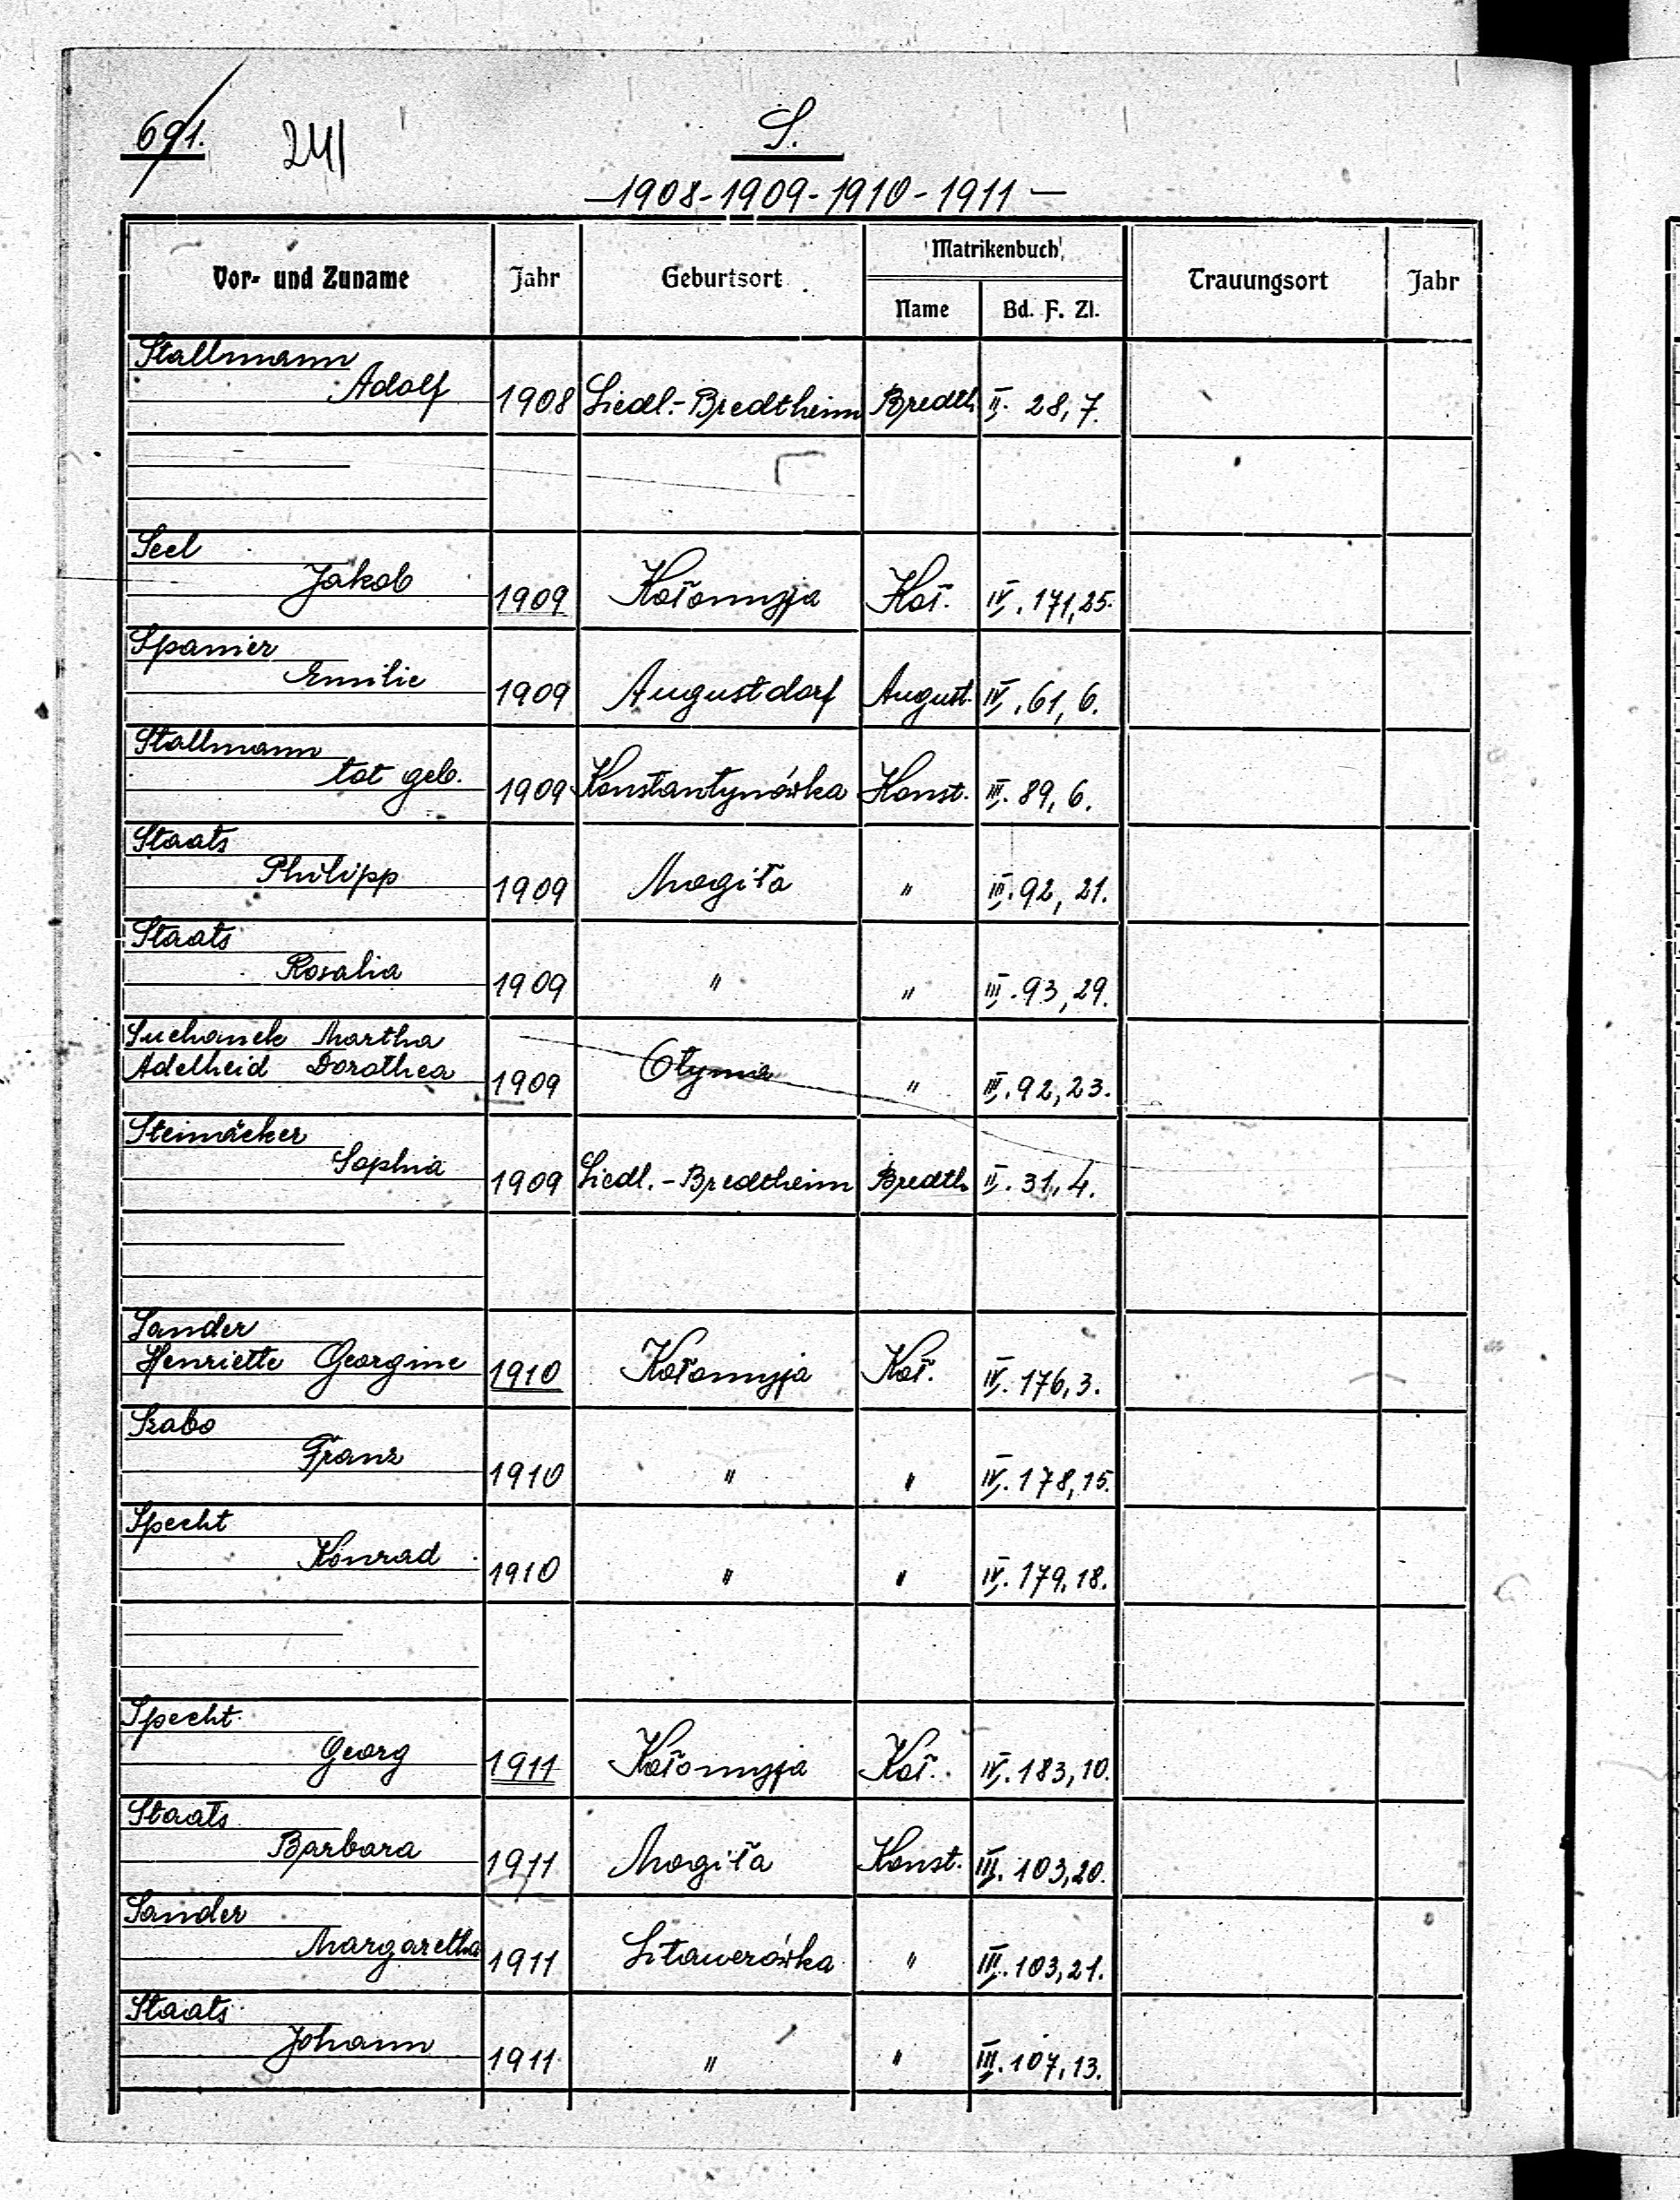 691. 241 S.
—1908-1909-1910-1911—
Vor- und Zuname Jahr Geburtsort Matrikenbuch Trauungsort Jahr
Name Bd. F. Zl.
Stallmann
Adolf 1908 Siedl.-Bredtheim Bredth. II. 28, 7.
Seel
Jakob 1909 Kołomyja Koł. IV. 171, 25.
Spanier
Emilie 1909 Augustdorf August. IV. 61, 6.
Stallmann
tot geb. 1909 Konstantynówka Konst. III. 89, 6.
Staats
Philipp 1909 Mogiła " III. 92, 21.
Staats
Rosalia 1909 " " III. 93, 29.
Suchanek Martha
Adelheid Dorothea 1909 Otynia " III. 92, 23.
Steinäcker
Sophia 1909 Siedl.-Bredtheim Bredth. II. 31, 4.
Sander
Henriette Georgine 1910 Kołomyja Koł. IV. 176, 3.
Szabo
Franz 1910 " " IV. 178, 15.
Specht
Konrad 1910 " " IV. 179, 18.
Specht
Georg 1911 Kołomyja Koł. IV. 183, 10.
Staats
Barbara 1911 Mogiła Konst. III. 103, 20.
Sander
Margaretha 1911 Sitawerówka " III. 103, 21.
Staats
Johann 1911 " " III. 107, 13.